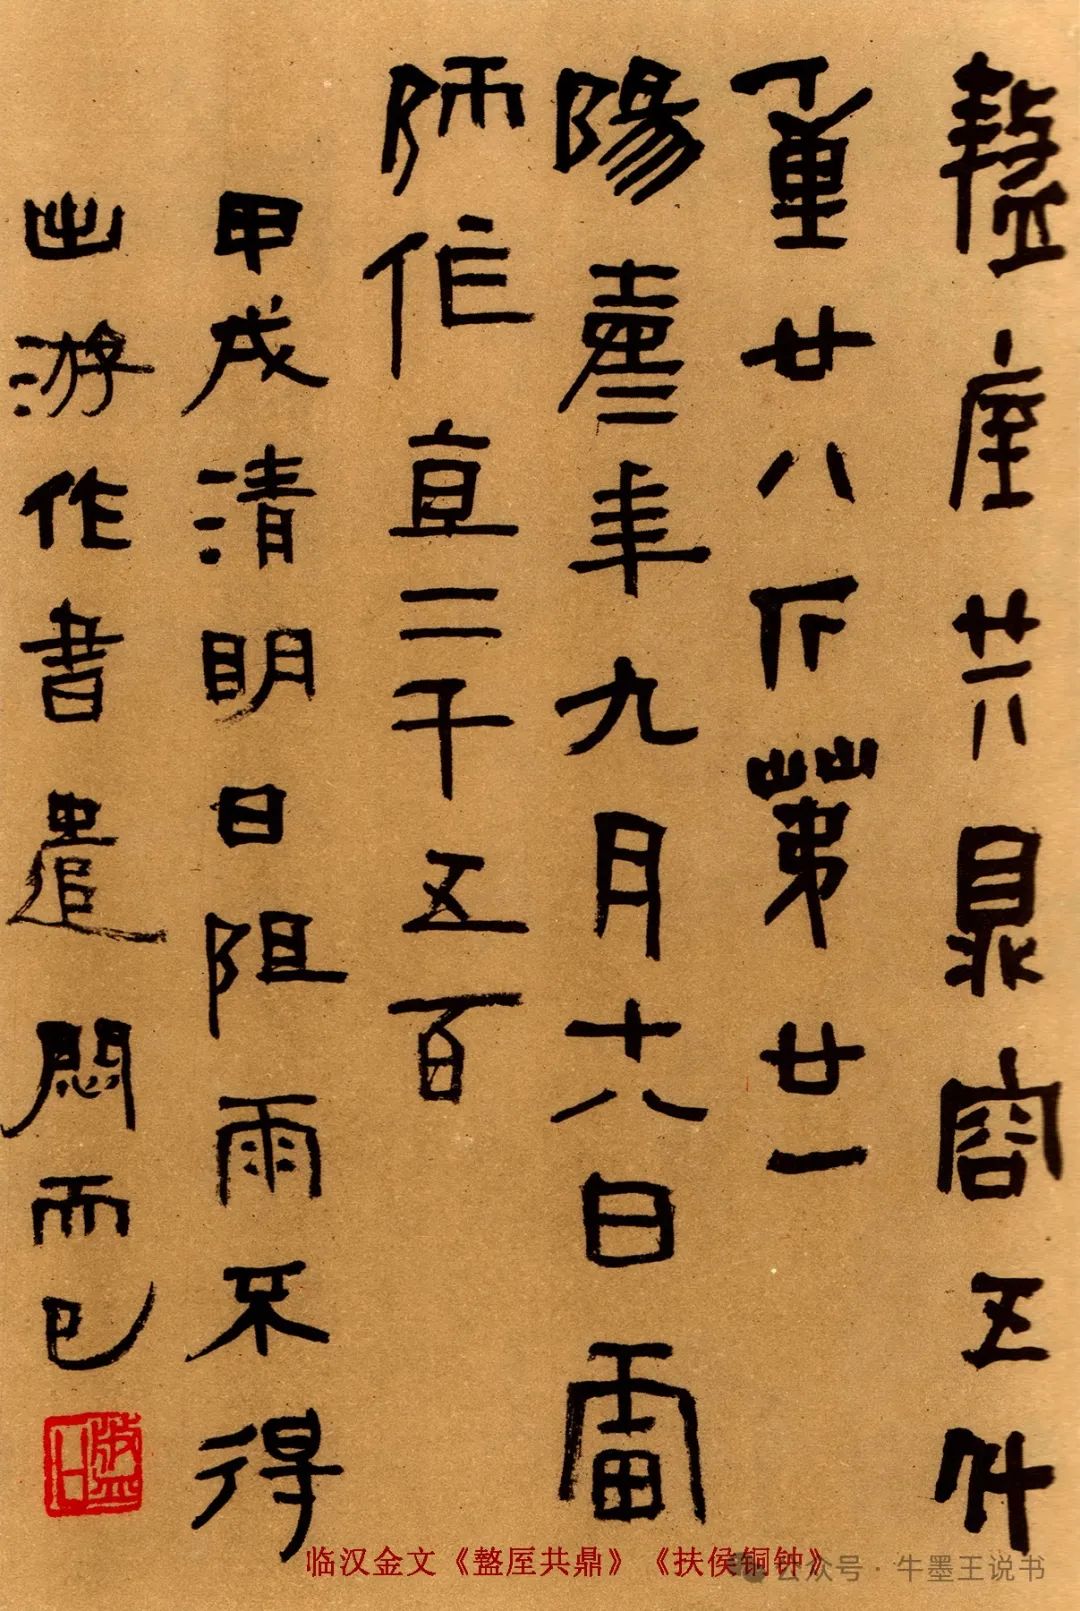 盩厔共鼎容五升
重廿八斤第廿一
陽嘉三年九月十八日雷
師作直二千五百
甲戌清明日阻雨不得
出游作書遣悶而已
临汉金文《盩厔共鼎》《扶侯铜钟》
公众号 · 牛墨王说书